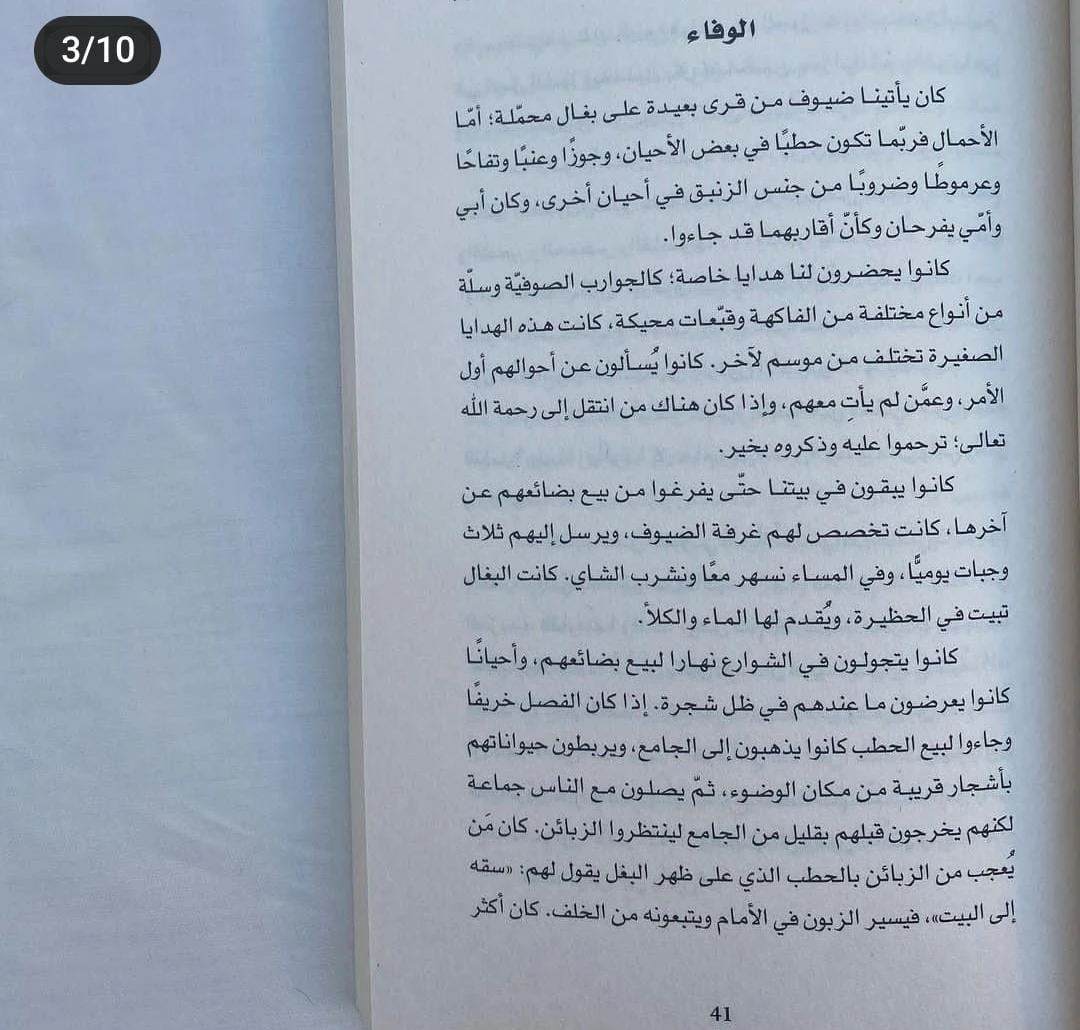 3/10
الوفاء
كان يأتينا ضيوف من قرى بعيدة على بغال محمّلة؛ أمّا
الأحمال فربّما تكون حطبًا في بعض الأحيان، وجوزًا وعنبًا وتفاحًا
وعرموطًا وضروبًا من جنس الزنبق في أحيان أخرى، وكان أبي
وأمّي يفرحان وكأنّ أقاربهما قد جاءوا.
كانوا يحضرون لنا هدايا خاصة؛ كالجوارب الصوفيّة وسلّة
من أنواع مختلفة من الفاكهة وقبّعات محيكة، كانت هذه الهدايا
الصغيرة تختلف من موسم لآخر. كانوا يُسألون عن أحوالهم أول
الأمر، وعمَّن لم يأتِ معهم، وإذا كان هناك من انتقل إلى رحمة الله
تعالى؛ ترحموا عليه وذكروه بخير.
كانوا يبقون في بيتنا حتّى يفرغوا من بيع بضائعهم عن
آخرها، كانت تخصص لهم غرفة الضيوف، ويرسل إليهم ثلاث
وجبات يوميًّا، وفي المساء نسهر معًا ونشرب الشاي. كانت البغال
تبيت في الحظيرة، ويُقدم لها الماء والكلأ.
كانوا يتجولون في الشوارع نهارا لبيع بضائعهم، وأحيانًا
كانوا يعرضون ما عندهم في ظل شجرة. إذا كان الفصل خريفًا
وجاءوا لبيع الحطب كانوا يذهبون إلى الجامع، ويربطون حيواناتهم
بأشجار قريبة من مكان الوضوء، ثمّ يصلون مع الناس جماعة
لكنهم يخرجون قبلهم بقليل من الجامع لينتظروا الزبائن. كان مَن
يُعجب من الزبائن بالحطب الذي على ظهر البغل يقول لهم: «سقه
إلى البيت»، فيسير الزبون في الأمام ويتبعونه من الخلف. كان أكثر
41